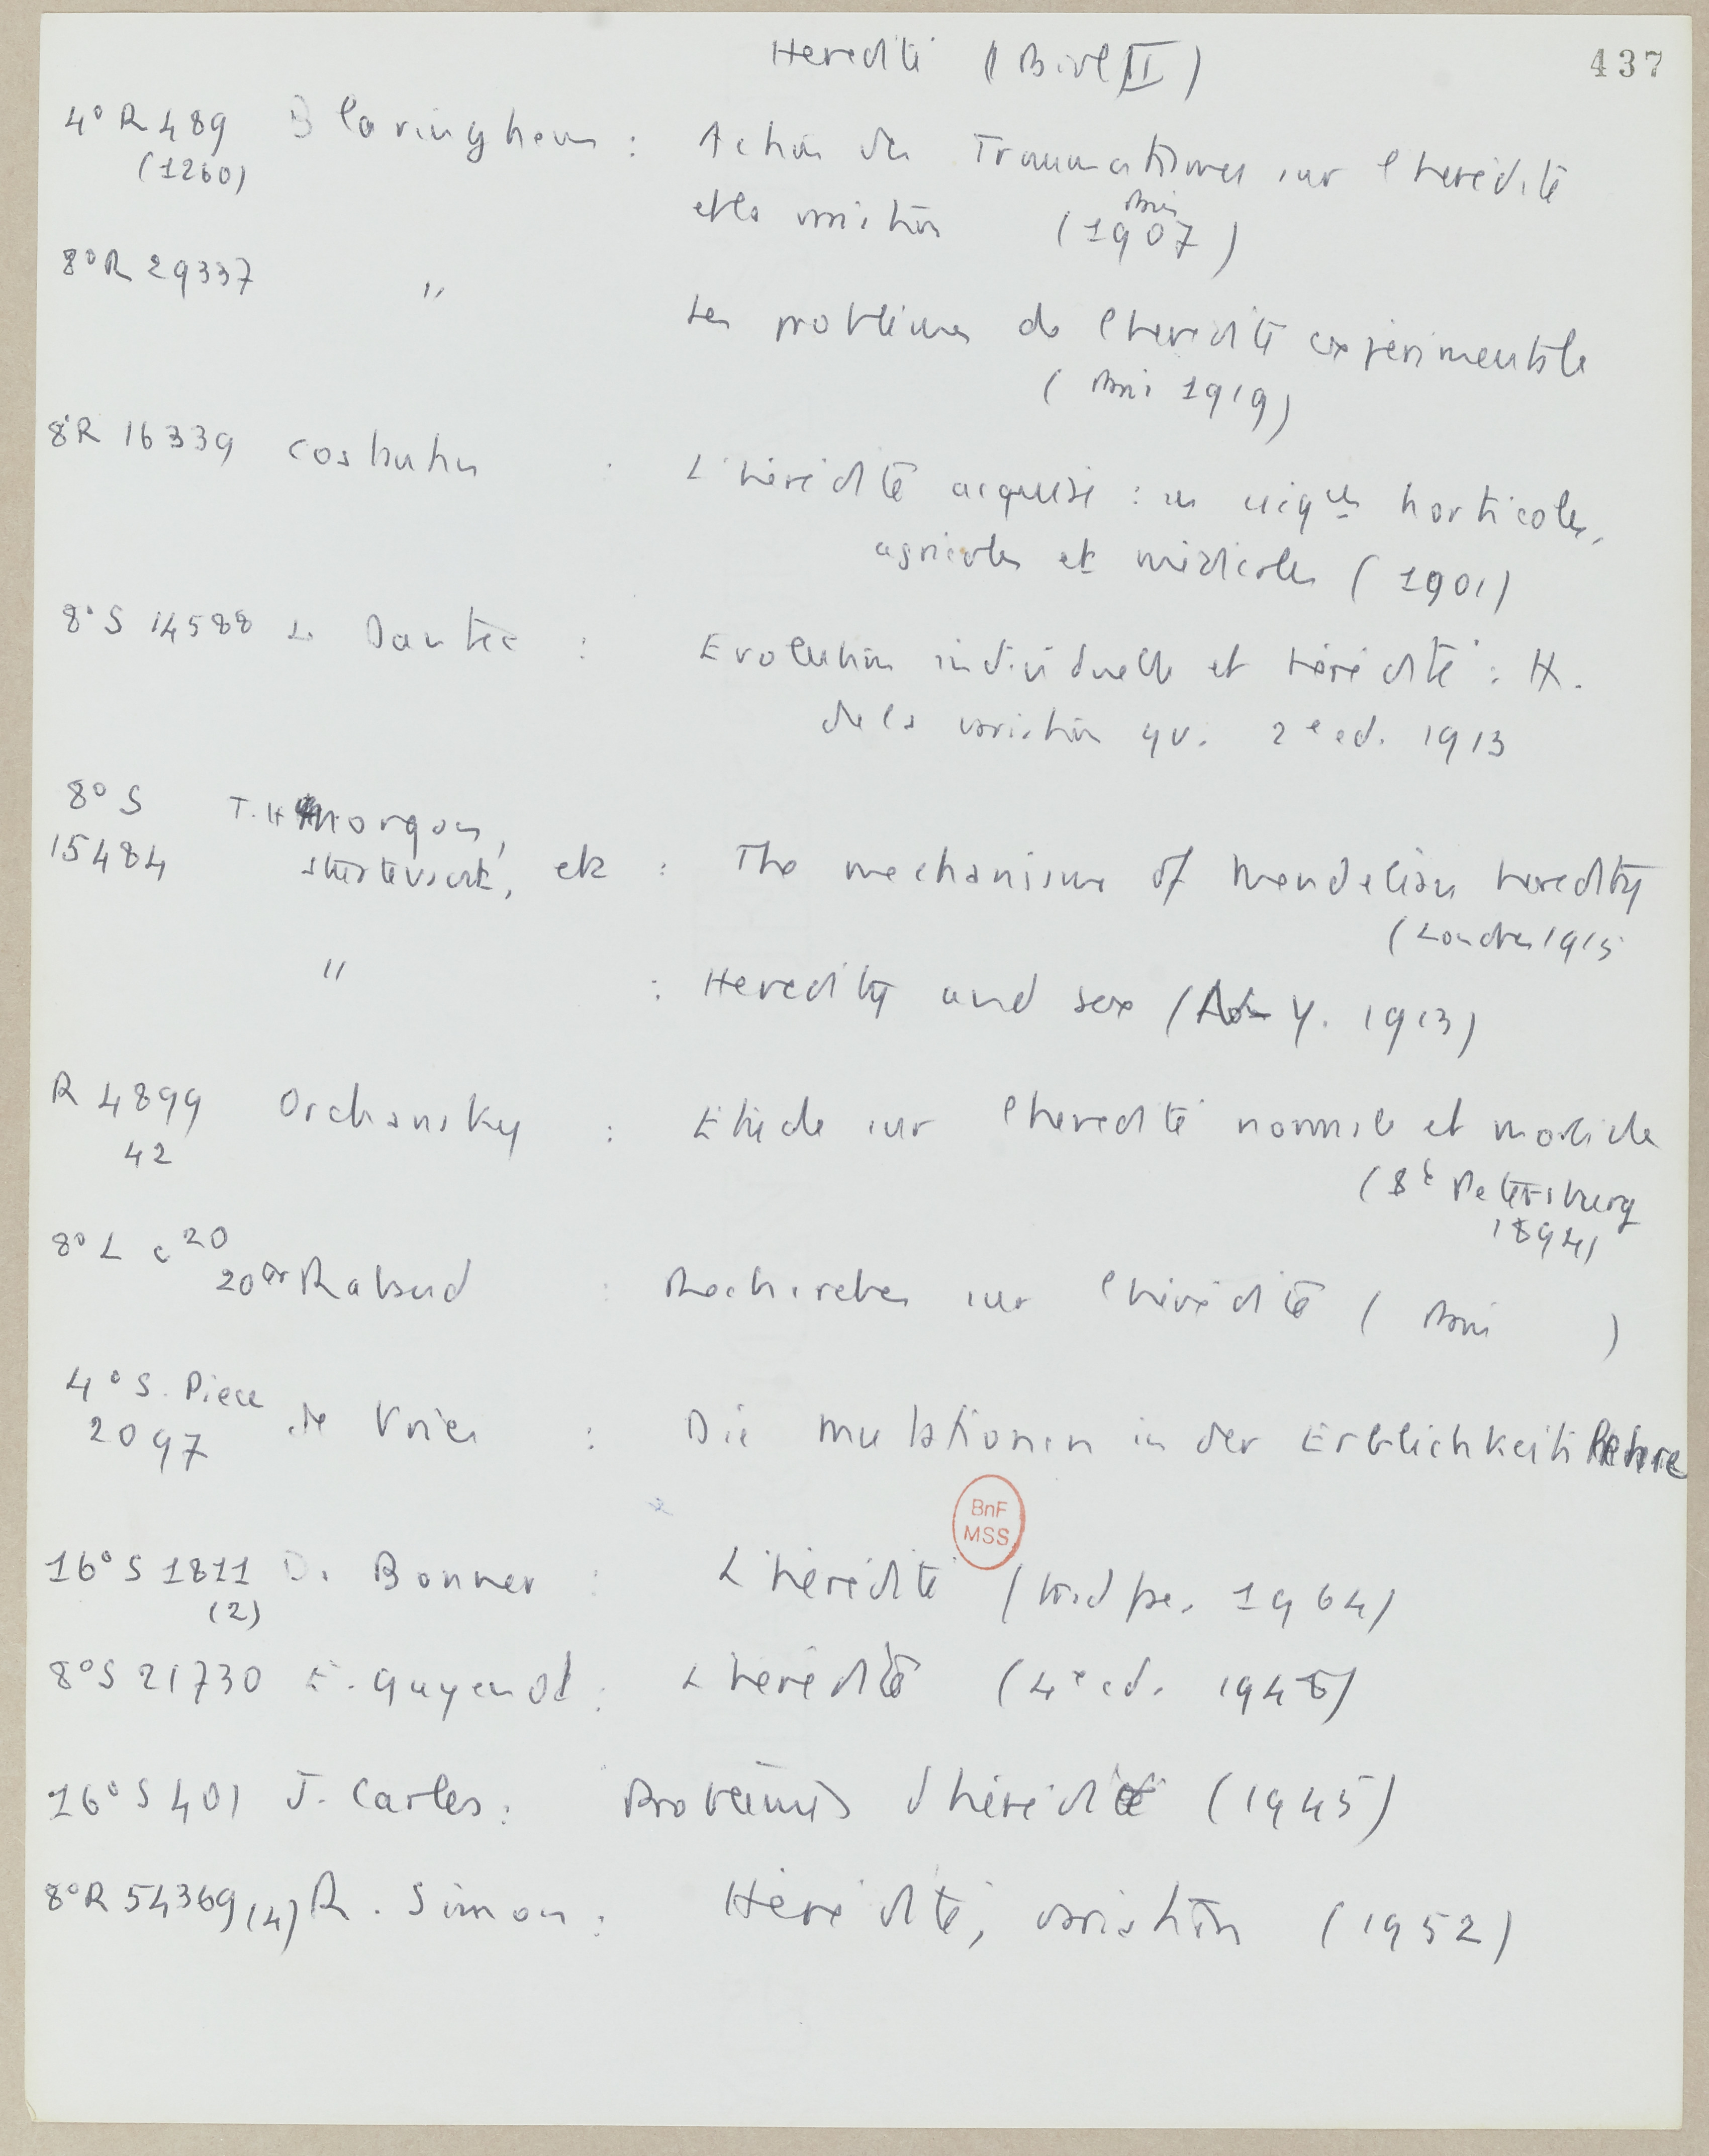 437
Heredité (Bibl II)
4° R 489 Blaringhem : Action des Traumatismes sur l'heredité
(1260)
et la variation (Paris 1907)
8° R 29337 " Les problèmes de l'heredité expérimentale
(Paris 1919)
8° R 16339 Costantin : L'hérédité acquise : ses horticoles,
agricoles et médicales (1901)
8° S 14588 Le Dantec : Evolution individuelle et hérédité : Th.
de la variation qv. 2e ed. 1913
8° S T. H Morgan,
15484 Sturtevant, etc : The mechanisme of Mendelian heredity
(Londres 1915
" : Heredity and sex (N Y. 1913)
R 4899 Orchansky : Etude sur l'heredité normale et morbide
42
(St Petersburg
1894)
8° L c 20
20 Rabaud : Recherches sur l'hérédité (Paris )
4° S. Piece
2097 de Vries : Die Mutationen in der Erblichkeits lehre
BnF
MSS
16° S 1811 D. Bonner : L'hérédité (trad fse. 1964)
(2)
8° S 21730 E. Guyenot : L'hérédité (4e ed. 1948)
16° S 401 J. Carles : Problèmes d'hérédité (1945)
8° R 54369 (4) R. Simon : Hérédité, variation (1952)